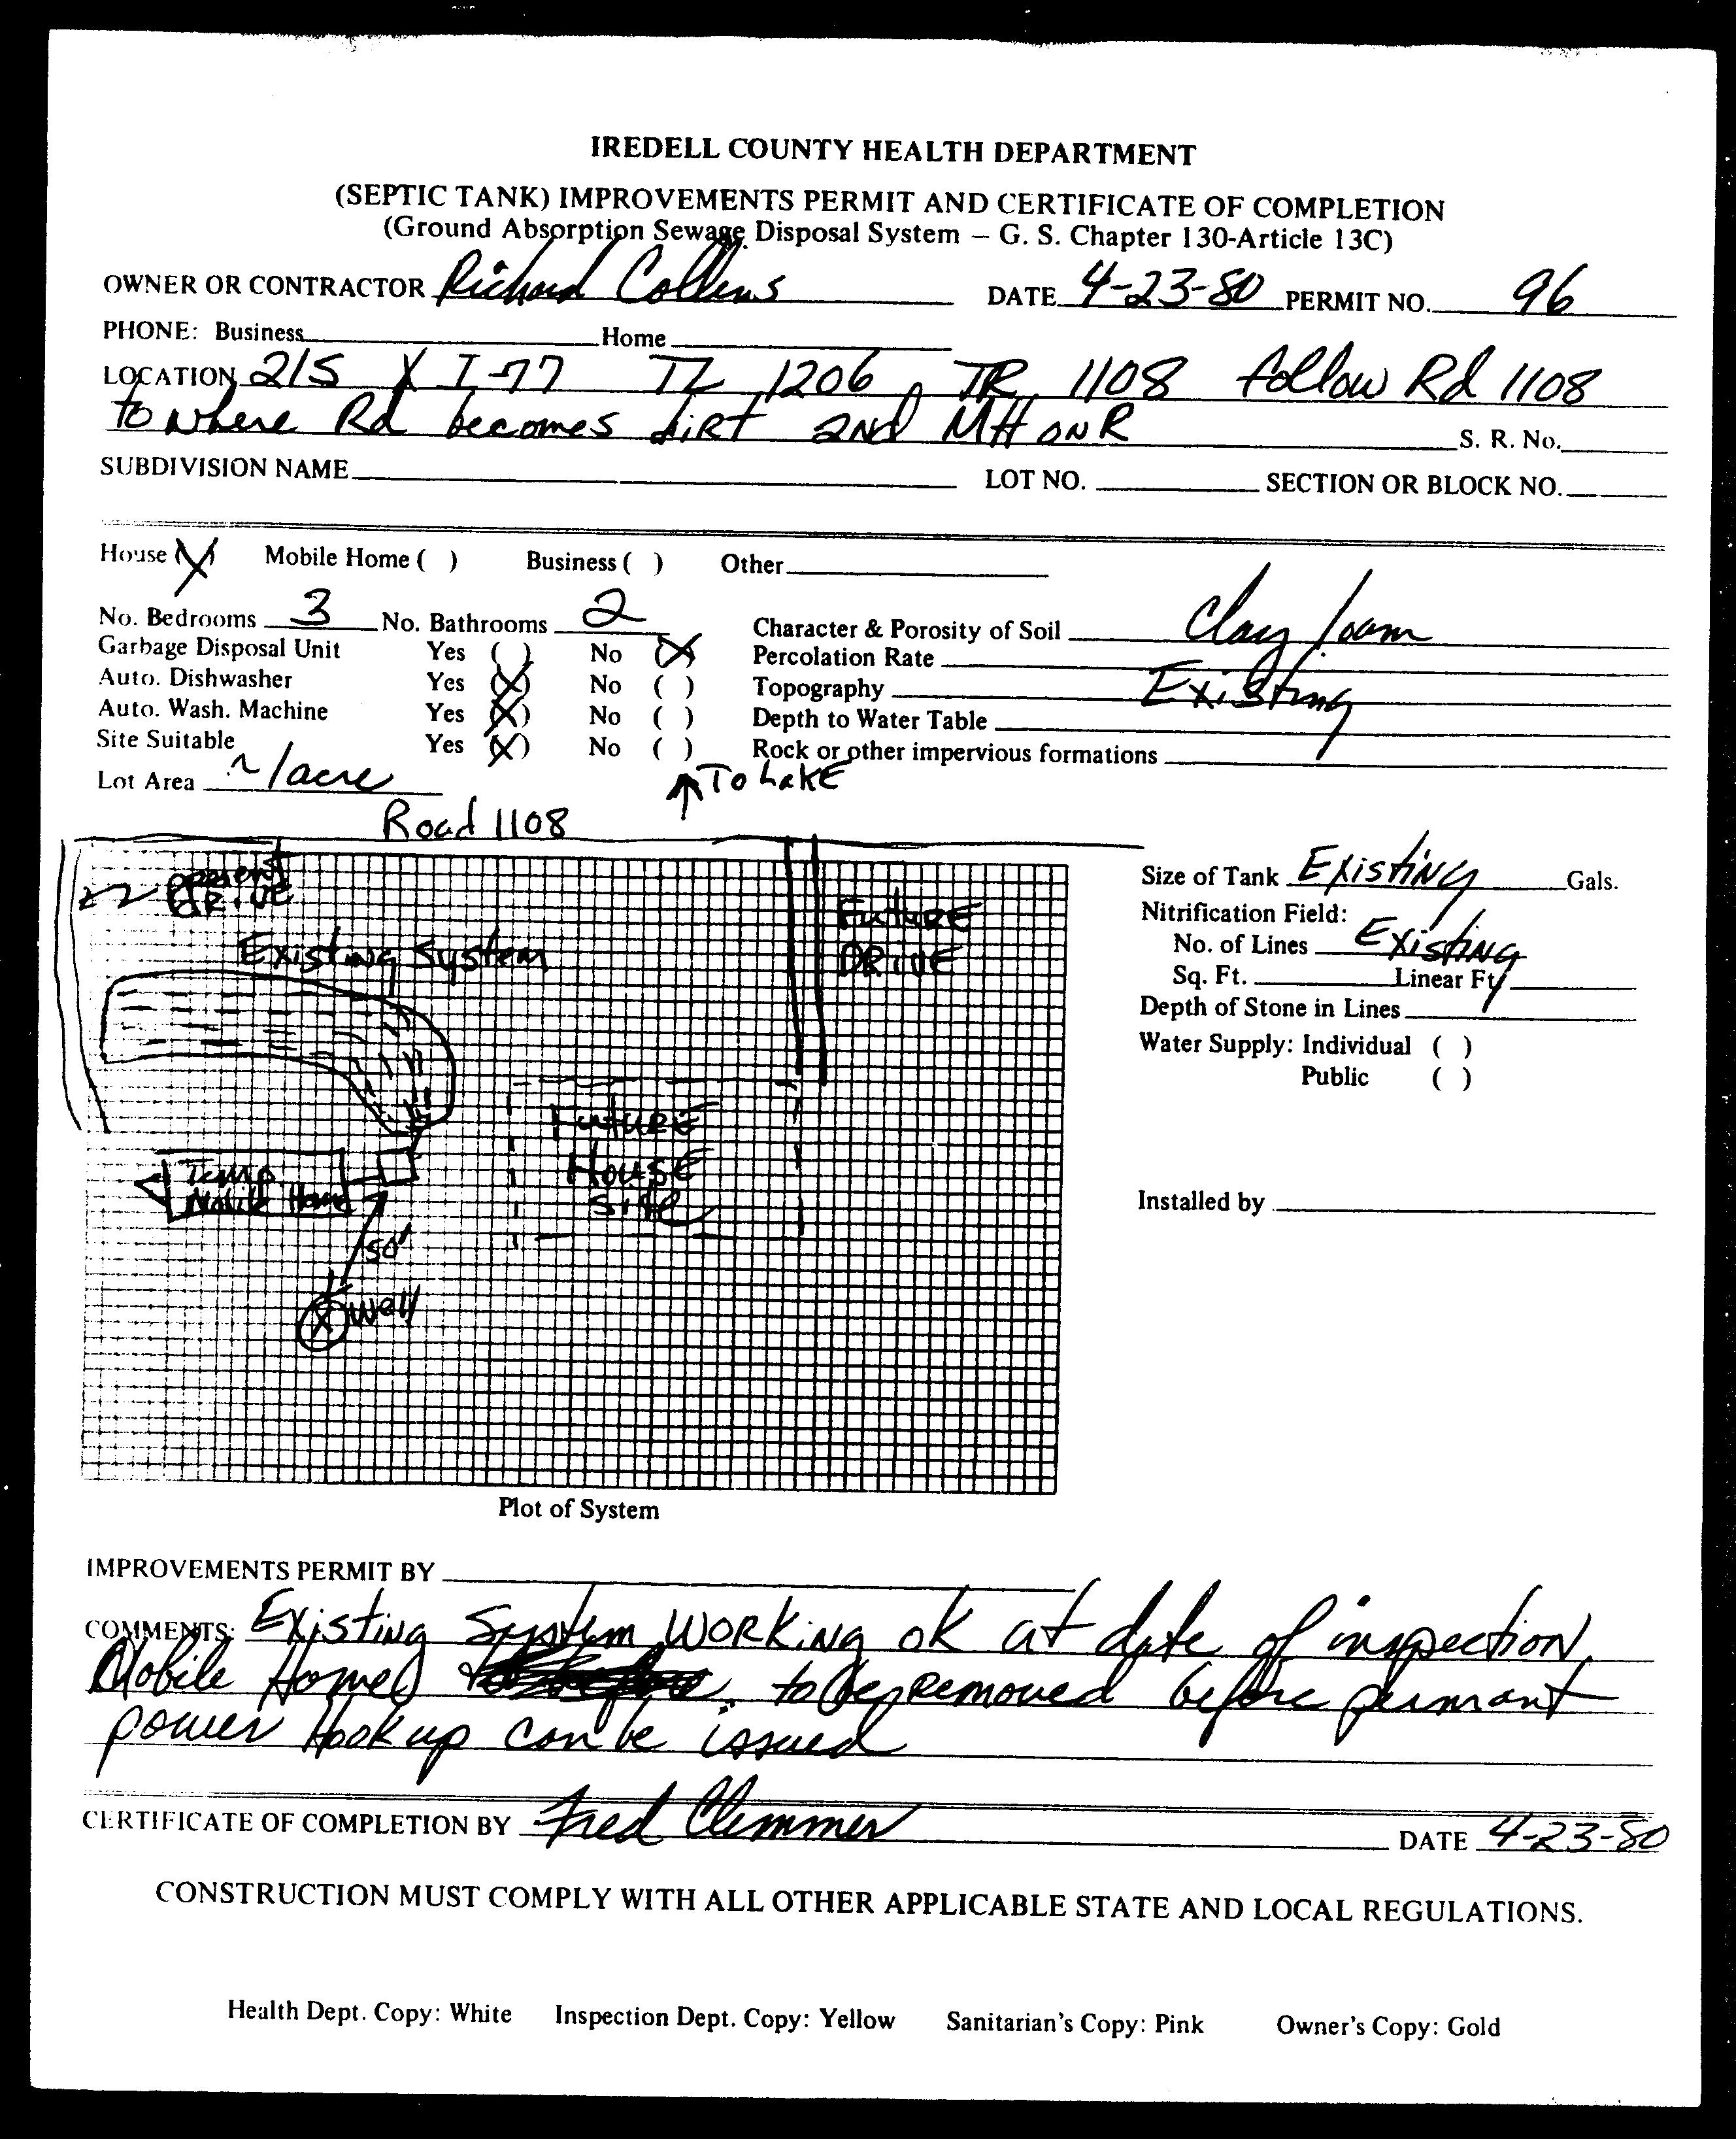 IREDELL COUNTY HEALTH DEPARTMENT
(SEPTIC TANK) IMPROVEMENTS PERMIT AND CERTIFICATE OF COMPLETION
(Ground Absorption Sewage Disposal System – G. S. Chapter 130-Article 13C)
OWNER OR CONTRACTOR Richard Collins DATE 4-23-80 PERMIT NO. 96
PHONE: Business Home
LOCATION 21S X I-77 TL 1206, TR 1108 follow Rd 1108
to where Rd becomes dirt 2nd MH on R S. R. No.
SUBDIVISION NAME LOT NO. SECTION OR BLOCK NO.
House (X) Mobile Home ( ) Business ( ) Other
No. Bedrooms 3 No. Bathrooms 2 Character & Porosity of Soil Clay loam
Garbage Disposal Unit Yes ( ) No (X) Percolation Rate
Auto. Dishwasher Yes (X) No ( ) Topography Existing
Auto. Wash. Machine Yes (X) No ( ) Depth to Water Table
Site Suitable Yes (X) No ( ) Rock or other impervious formations
Lot Area ~1 acre
↑ To Lake
Road 1108
present
drive
Existing System
Future
Drive
Size of Tank Existing Gals.
Nitrification Field:
No. of Lines Existing
Sq. Ft. Linear Ft.
Depth of Stone in Lines
Water Supply: Individual ( )
Public ( )
Future
House
Site
Temp.
Mobile Home
50'
X Well
Installed by
Plot of System
IMPROVEMENTS PERMIT BY
COMMENTS: Existing System working ok at date of inspection
Mobile Home to be removed before permant
power hook up can be issued
CERTIFICATE OF COMPLETION BY Fred Clemmer DATE 4-23-80
CONSTRUCTION MUST COMPLY WITH ALL OTHER APPLICABLE STATE AND LOCAL REGULATIONS.
Health Dept. Copy: White Inspection Dept. Copy: Yellow Sanitarian's Copy: Pink Owner's Copy: Gold